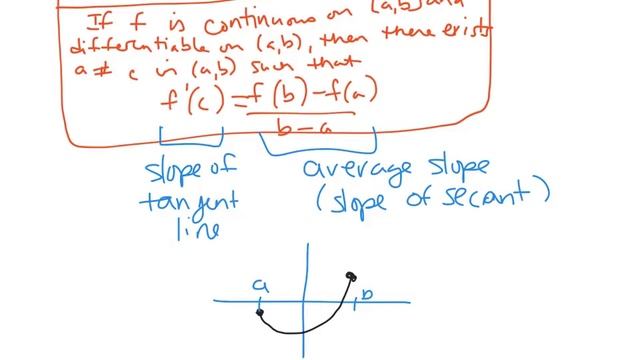 If f is continuous on [a,b] and
differentiable on (a,b), then there exists
a # c in (a,b) such that
f'(c) = f(b)-f(a)
b-a
slope of
tangent
line
average slope
(slope of secant)
a
b